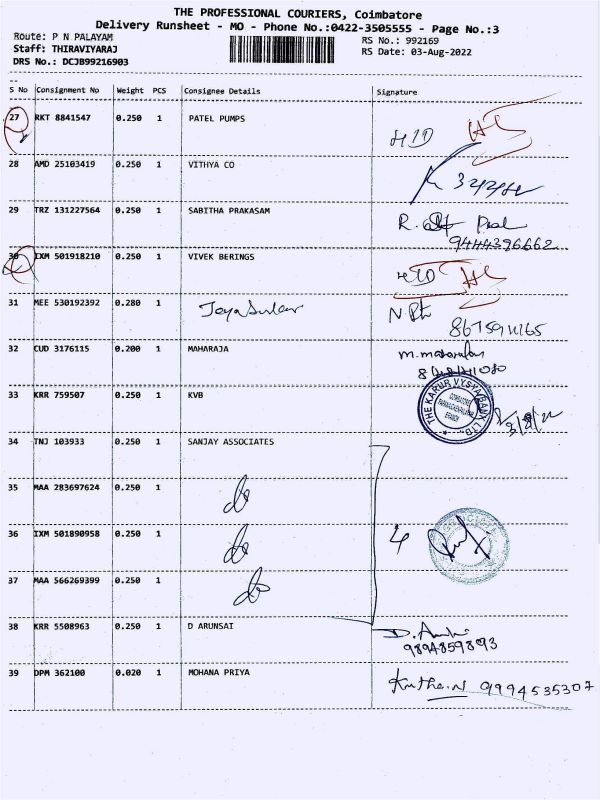 THE PROFESSIONAL COURIERS, Coimbatore
Delivery Runsheet - MO - Phone No.:0422-3505555 - Page No.:3
Route: P N PALAYAM
RS No.: 992169
Staff: THIRAVIYARAJ
RS Date: 03-Aug-2022
DRS No.: DCJB99216903
S No Consignment No Weight PCS Consignee Details Signature
27 RKT 8841547 0.250 1 PATEL PUMPS
28 AMD 25103419 0.250 1 VITHYA CO
29 TRZ 131227564 0.250 1 SABITHA PRAKASAM
9444396662
30 IXM 501918210 0.250 1 VIVEK BERINGS
31 MEE 530192392 0.280 1
32 CUD 3176115 0.200 1 MAHARAJA
33 KRR 759507 0.250 1 KVB
THE KARUR VYSYA BANK LTD.
34 TNJ 103933 0.250 1 SANJAY ASSOCIATES
35 MAA 283697624 0.250 1
36 IXM 501890958 0.250 1 4
37 MAA 566269399 0.250 1
38 KRR 5508963 0.250 1 D ARUNSAI
9894859893
39 DPM 362100 0.020 1 MOHANA PRIYA 9994535307